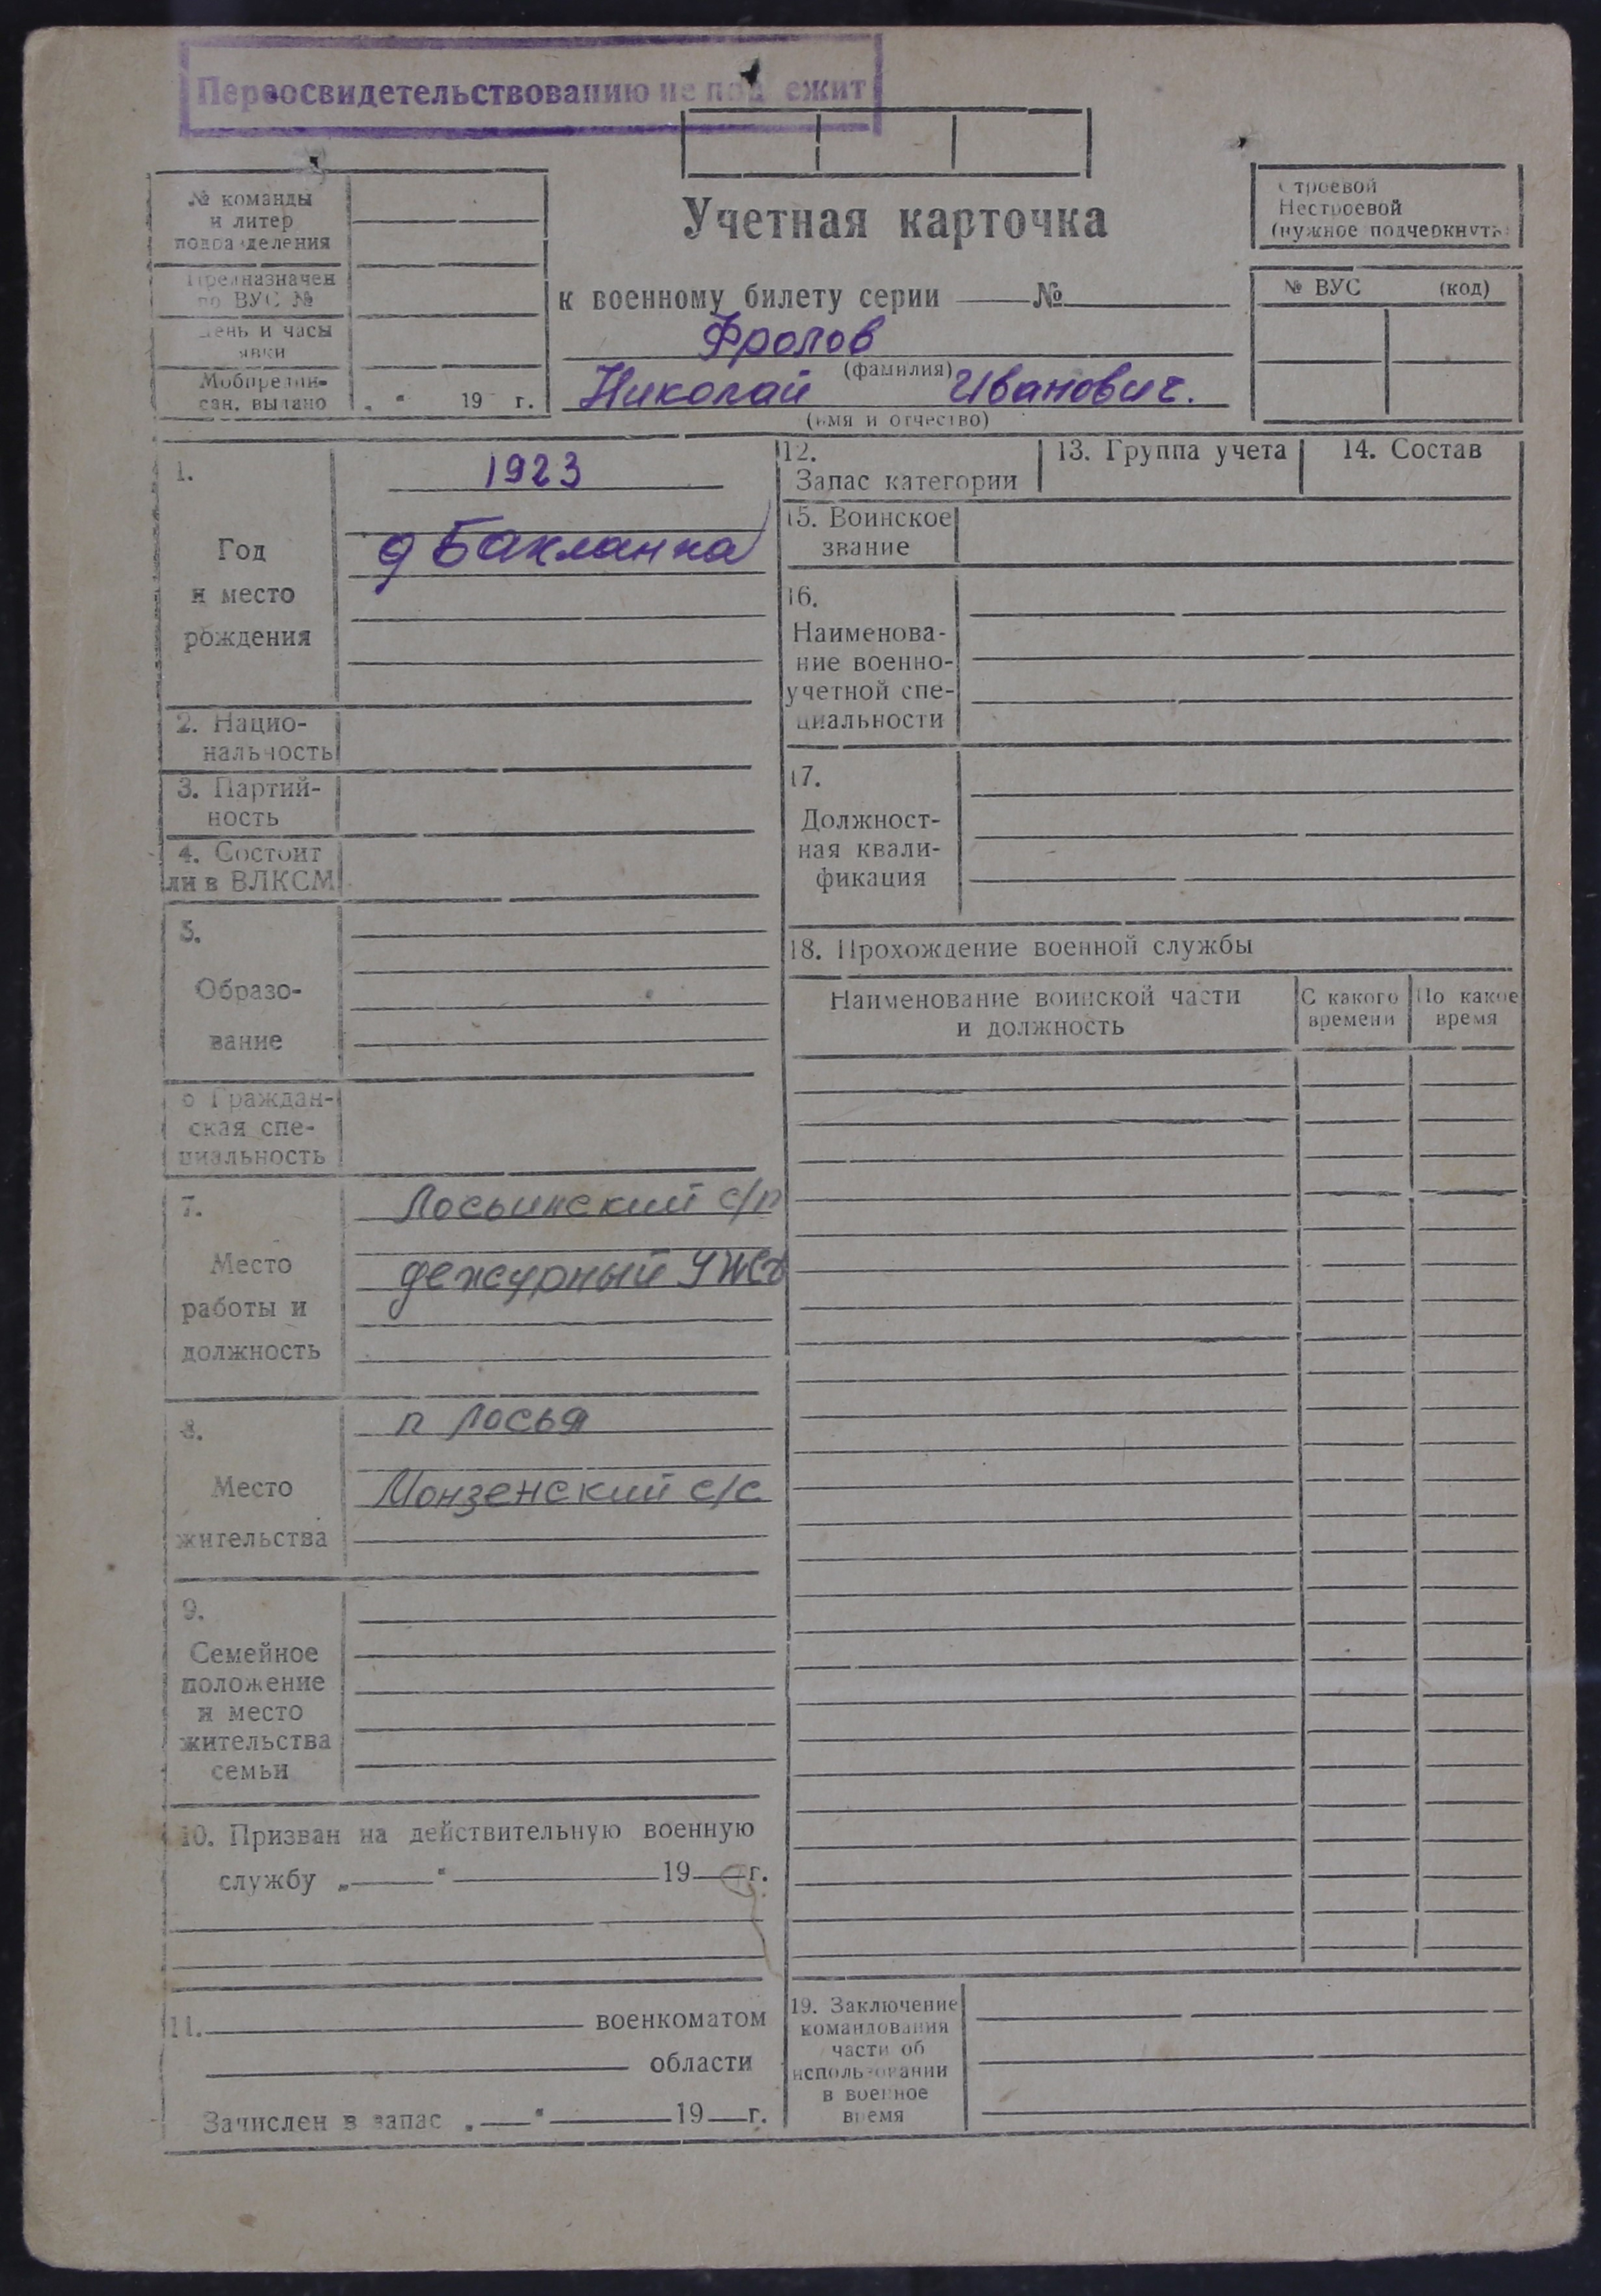 Переосвидетельствованию не подлежит
№ команды
и литер
подразделения
Предназначен
по ВУС №
День и часы
явки
Мобпредпи-
сан. выдано „ “ 19 г.
Учетная карточка
к военному билету серии №
Фролов
(фамилия)
Николай Иванович.
(имя и отчество)
Строевой
Нестроевой
(нужное подчеркнуть)
№ ВУС (код)
1.
Год
и место
рождения
1923
д Бакланка
2. Нацио-
нальность
3. Партий-
ность
4. Состоит
ли в ВЛКСМ
5.
Образо-
вание
6 Граждан-
ская спе-
циальность
7.
Место
работы и
должность
Лосьинский с/п
дежурный УЖД
8.
Место
жительства
п Лосья
Монзенский с/с
9.
Семейное
положение
и место
жительства
семьи
10. Призван на действительную военную
службу „ “ 19 г.
11. военкоматом
области
Зачислен в запас „ “ 19 г.
12.
Запас категории
13. Группа учета
14. Состав
15. Воинское
звание
16.
Наименова-
ние военно-
учетной спе-
циальности
17.
Должност-
ная квали-
фикация
18. Прохождение военной службы
Наименование воинской части
и должность
С какого
времени
По какое
время
19. Заключение
командования
части об
использовании
в военное
время